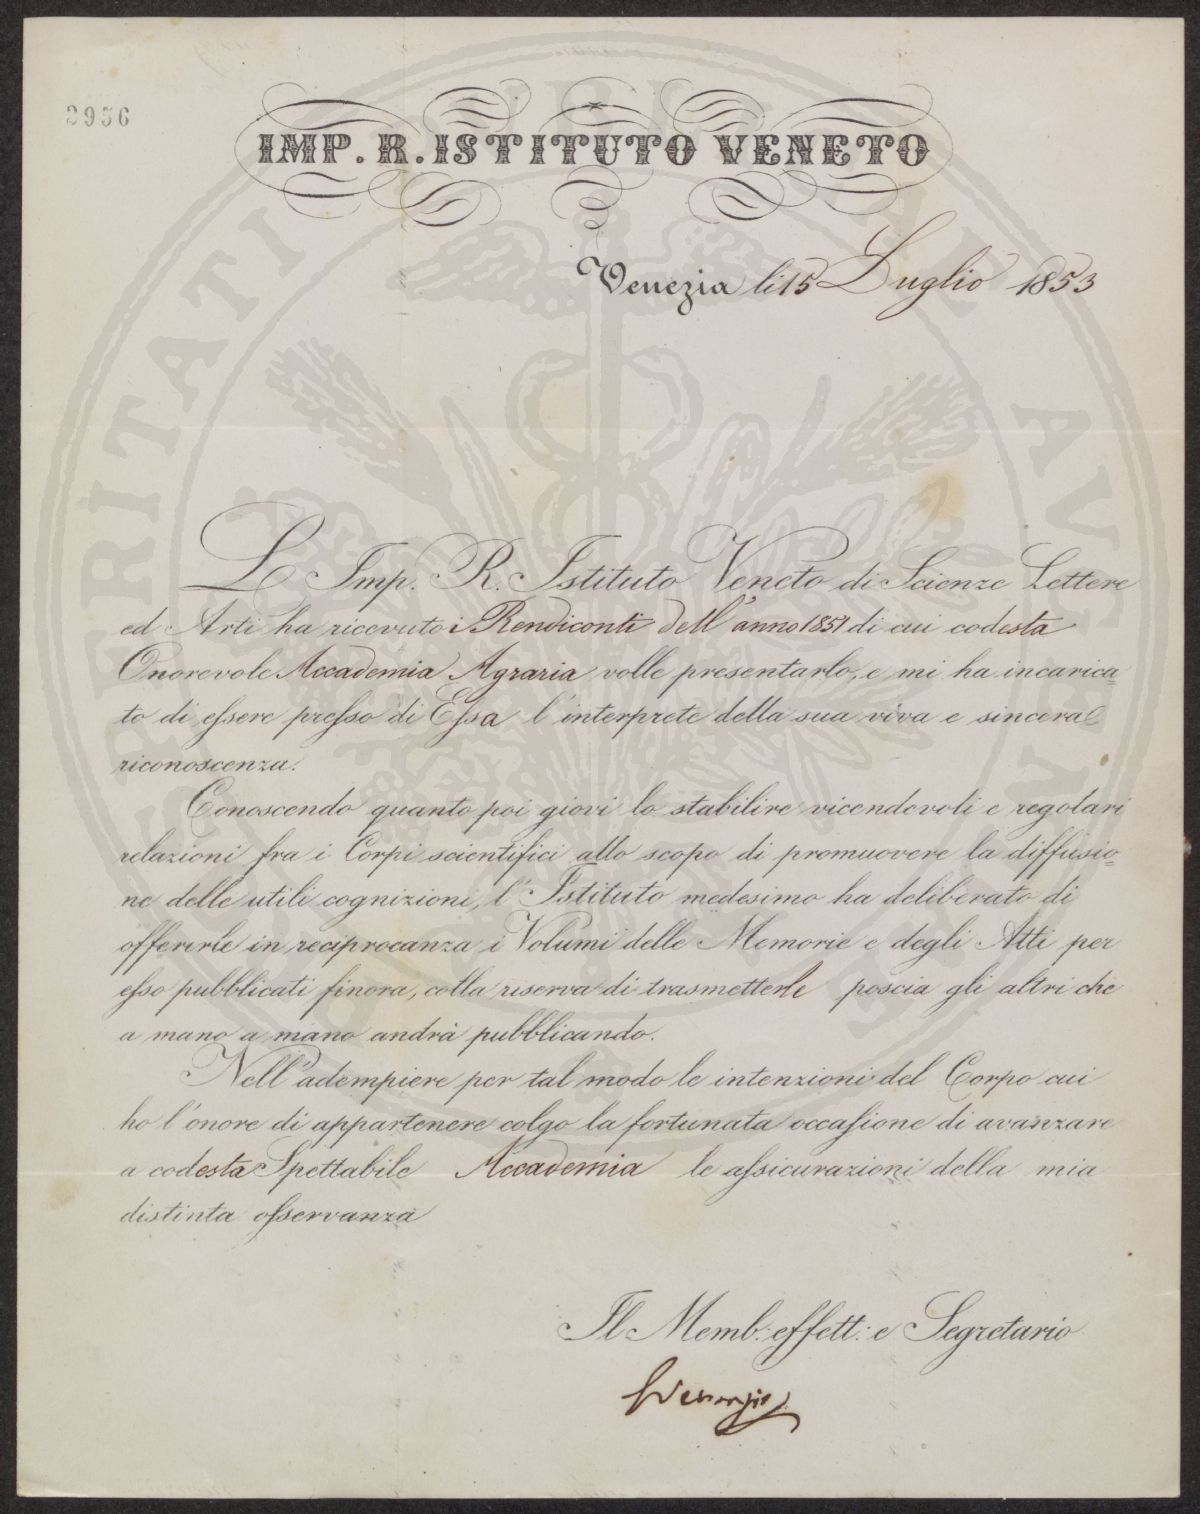 2956
IMP. R. ISTITUTO VENETO
Venezia li 15 Luglio 1853
L' Imp. R. Istituto Veneto di Scienze Lettere
ed Arti ha ricevuto i Rendiconti dell' anno 1851 di cui codesta
Onorevole Accademia Agraria volle presentarlo, e mi ha incarica-
to di essere presso di Essa l' interprete della sua viva e sincera
riconoscenza.
Conoscendo quanto poi giovi lo stabilire vicendevoli e regolari
relazioni fra i Corpi scientifici allo scopo di promuovere la diffusio-
ne delle utili cognizioni, l' Istituto medesimo ha deliberato di
offerirle in reciprocanza i Volumi delle Memorie e degli Atti per
esso pubblicati finora, colla riserva di trasmetterle poscia gli altri che
a mano a mano andrà pubblicando.
Nell' adempiere per tal modo le intenzioni del Corpo cui
ho l' onore di appartenere colgo la fortunata occasione di avanzare
a codesta Spettabile Accademia le assicurazioni della mia
distinta osservanza
Il Memb: effett: e Segretario